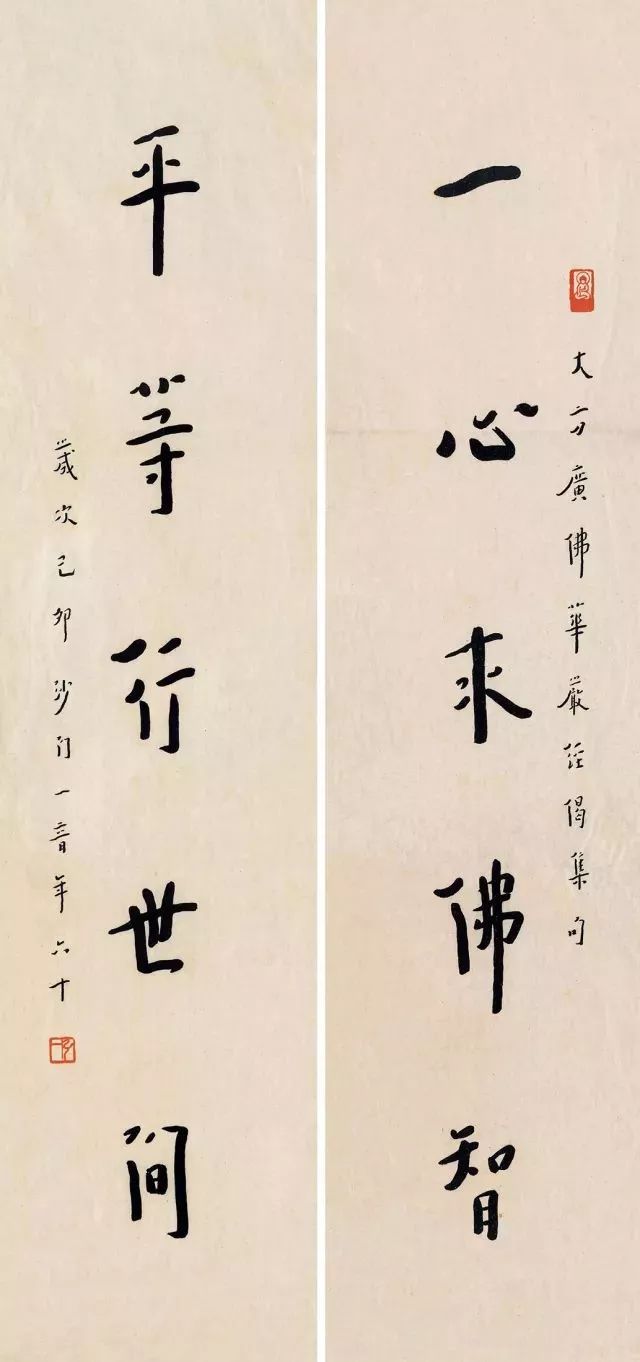 大方廣佛華嚴經偈集句
一心求佛智
平等行世間
歲次己卯沙門一音年六十